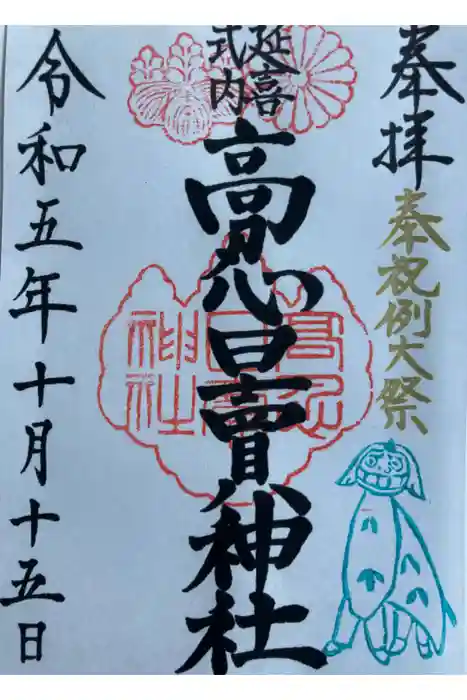 奉拝
奉祝例大祭
延喜
式内
高忍日賣神社
令和五年十月十五日
神社